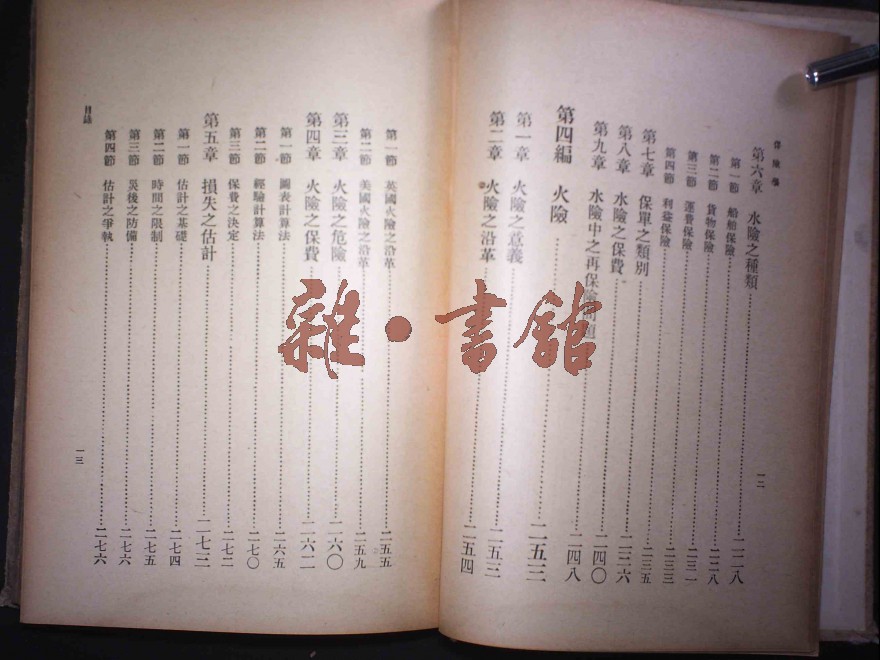 保險學
第六章 水險之種類 二二八
第一節 船舶保險
第二節 貨物保險 二二八
第三節 運費保險 二三一
第四節 利益保險 二三三
第七章 保單之類別 二三五
第八章 水險之保費 二三六
第九章 水險中之再保險問題 二四〇
第四編 火險 二四八
第一章 火險之意義 二五三
第二章 火險之沿革 二五三
二五四
一二
第一節 英國火險之沿革 二五五
第二節 美國火險之沿革 二五九
第三章 火險之危險 二六〇
第四章 火險之保費 二六二
第一節 圖表計算法 二六五
第二節 經驗計算法 二七〇
第三節 保費之決定 二七二
第五章 損失之估計 二七二
第一節 估計之基礎 二七四
第二節 時間之限制 二七五
第三節 災後之防備 二七六
第四節 估計之爭執 二七六
目錄
一三
雜·書館